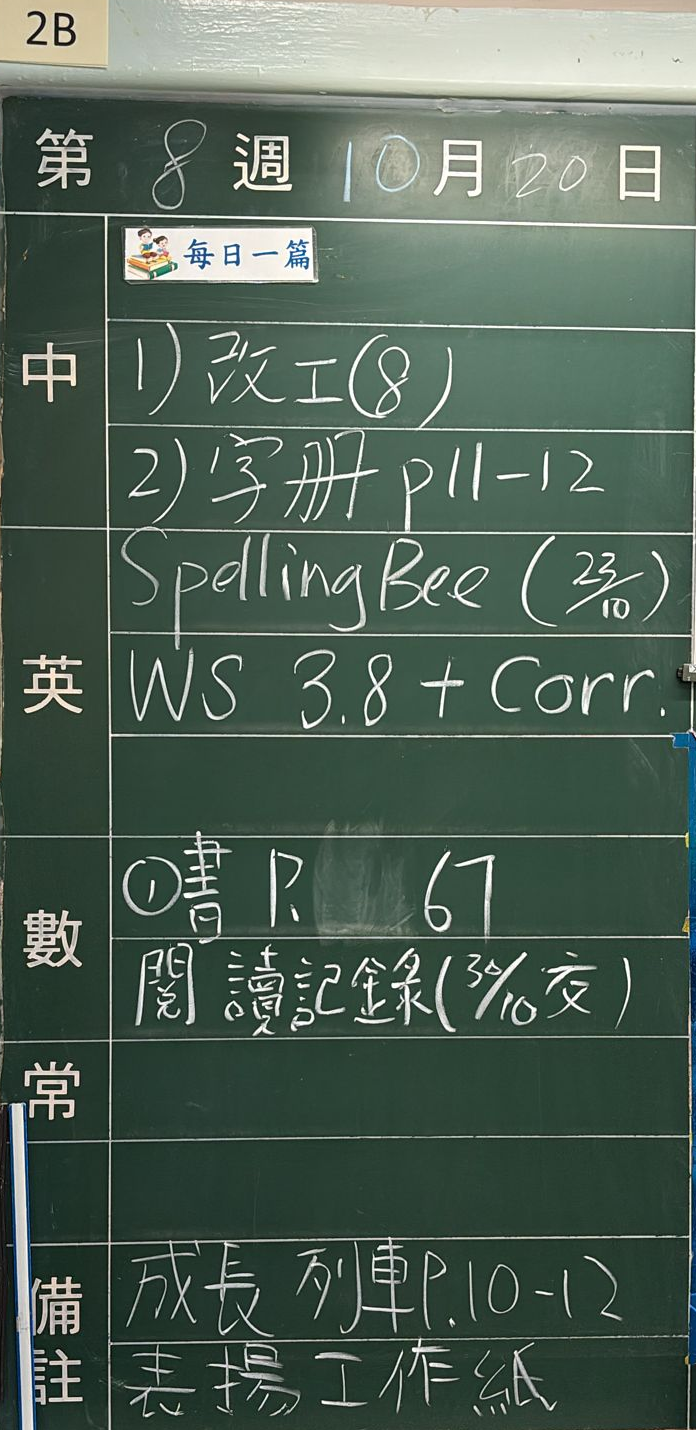 2B
第 8 週 10 月 20 日
中
每日一篇
1) 改工(8)
2) 字册 p11-12
英
Spelling Bee (23/10)
WS 3.8 + Corr.
數
① 書 P. 67
閱讀記錄(30/10 交)
常
備註
成長列車 P.10-12
表揚工作紙